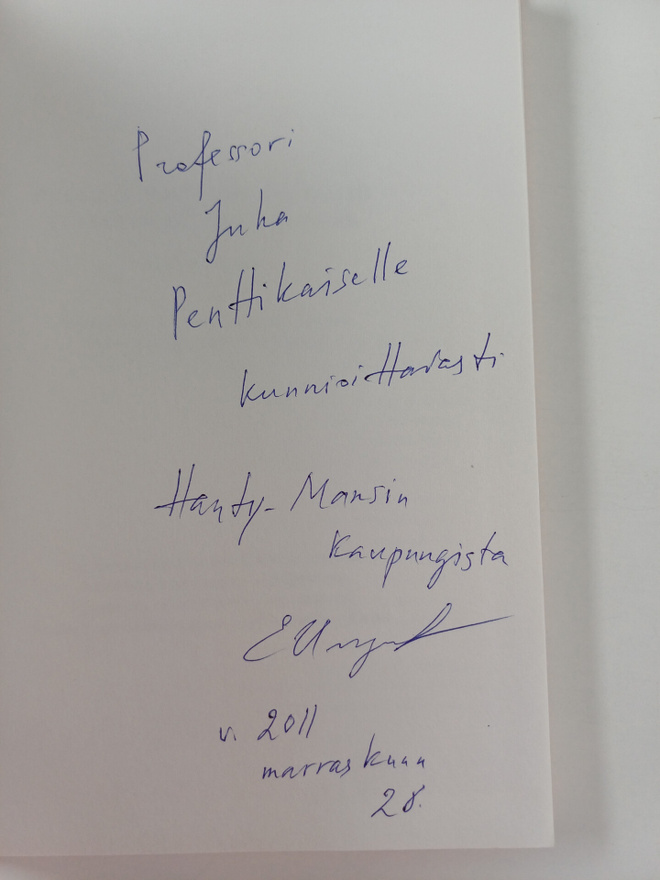 Professori
Juha
Penttikaiselle
kunnioittavasti
Hanty-Mansin
Kaupungista
v. 2011
marraskuun
28.